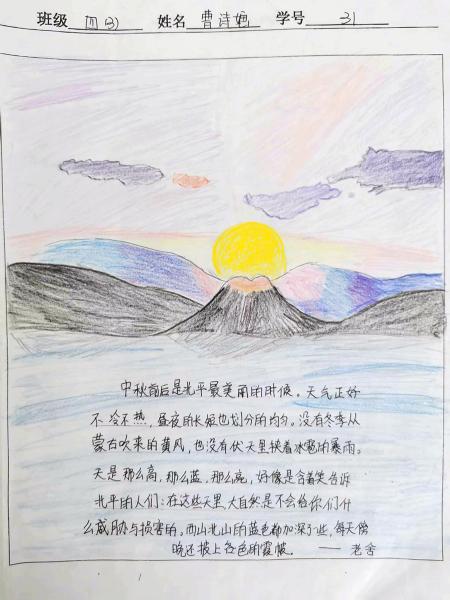 班级 四(3) 姓名 曹诗媲 学号 31
中秋前后是北平最美丽的时候。天气正好
不冷不热，昼夜的长短也划分的均匀。没有冬季从
蒙古吹来的黄风，也没有伏天里挟着冰雹的暴雨。
天是那么高，那么蓝，那么亮，好像是含着笑告诉
北平的人们：在这些天里，大自然是不会给你们什
么威胁与损害的。西山北山的蓝色都加深了些，每天傍
晚还披上各色的霞帔。 —— 老舍